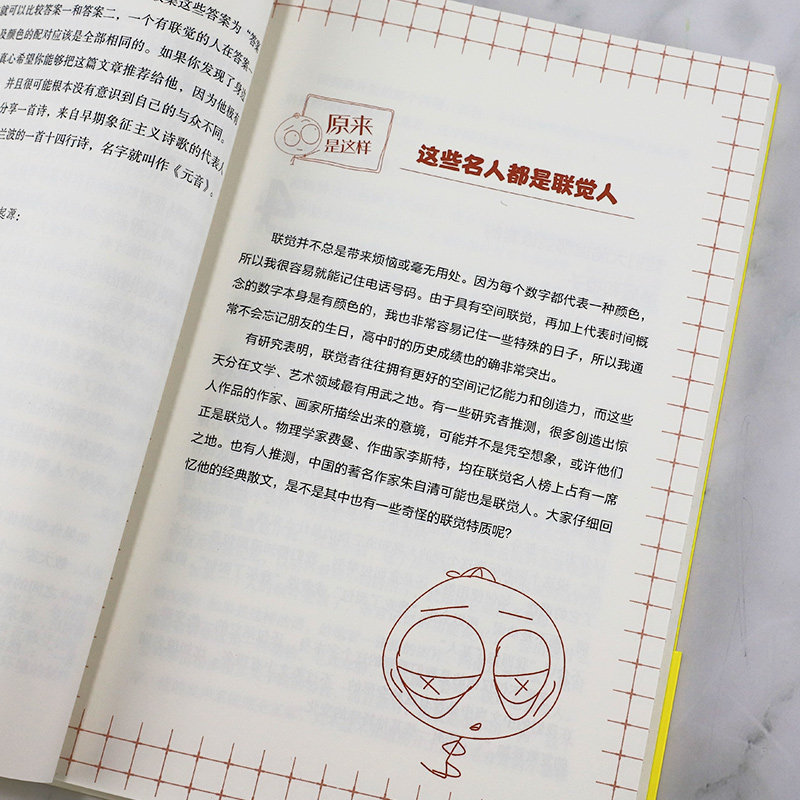 这些答案为“答案
就可以比较答案一和答案二，一个有联觉的人在答案一
及颜色的配对应该是全部相同的。如果你发现了身边
真心希望你能够把这篇文章推荐给他，因为他极有
并且很可能根本没有意识到自己的与众不同。
分享一首诗，来自早期象征主义诗歌的代表人
兰波的一首十四行诗，名字就叫作《元音》。
起源：
原来
是这样
这些名人都是联觉人
联觉并不总是带来烦恼或毫无用处。因为每个数字都代表一种颜色，
所以我很容易就能记住电话号码。由于具有空间联觉，再加上代表时间概
念的数字本身是有颜色的，我也非常容易记住一些特殊的日子，所以我通
常不会忘记朋友的生日，高中时的历史成绩也的确非常突出。
有研究表明，联觉者往往拥有更好的空间记忆能力和创造力，而这些
天分在文学、艺术领域最有用武之地。有一些研究者推测，很多创造出惊
人作品的作家、画家所描绘出来的意境，可能并不是凭空想象，或许他们
正是联觉人。物理学家费曼、作曲家李斯特，均在联觉名人榜上占有一席
之地。也有人推测，中国的著名作家朱自清可能也是联觉人。大家仔细回
忆他的经典散文，是不是其中也有一些奇怪的联觉特质呢？